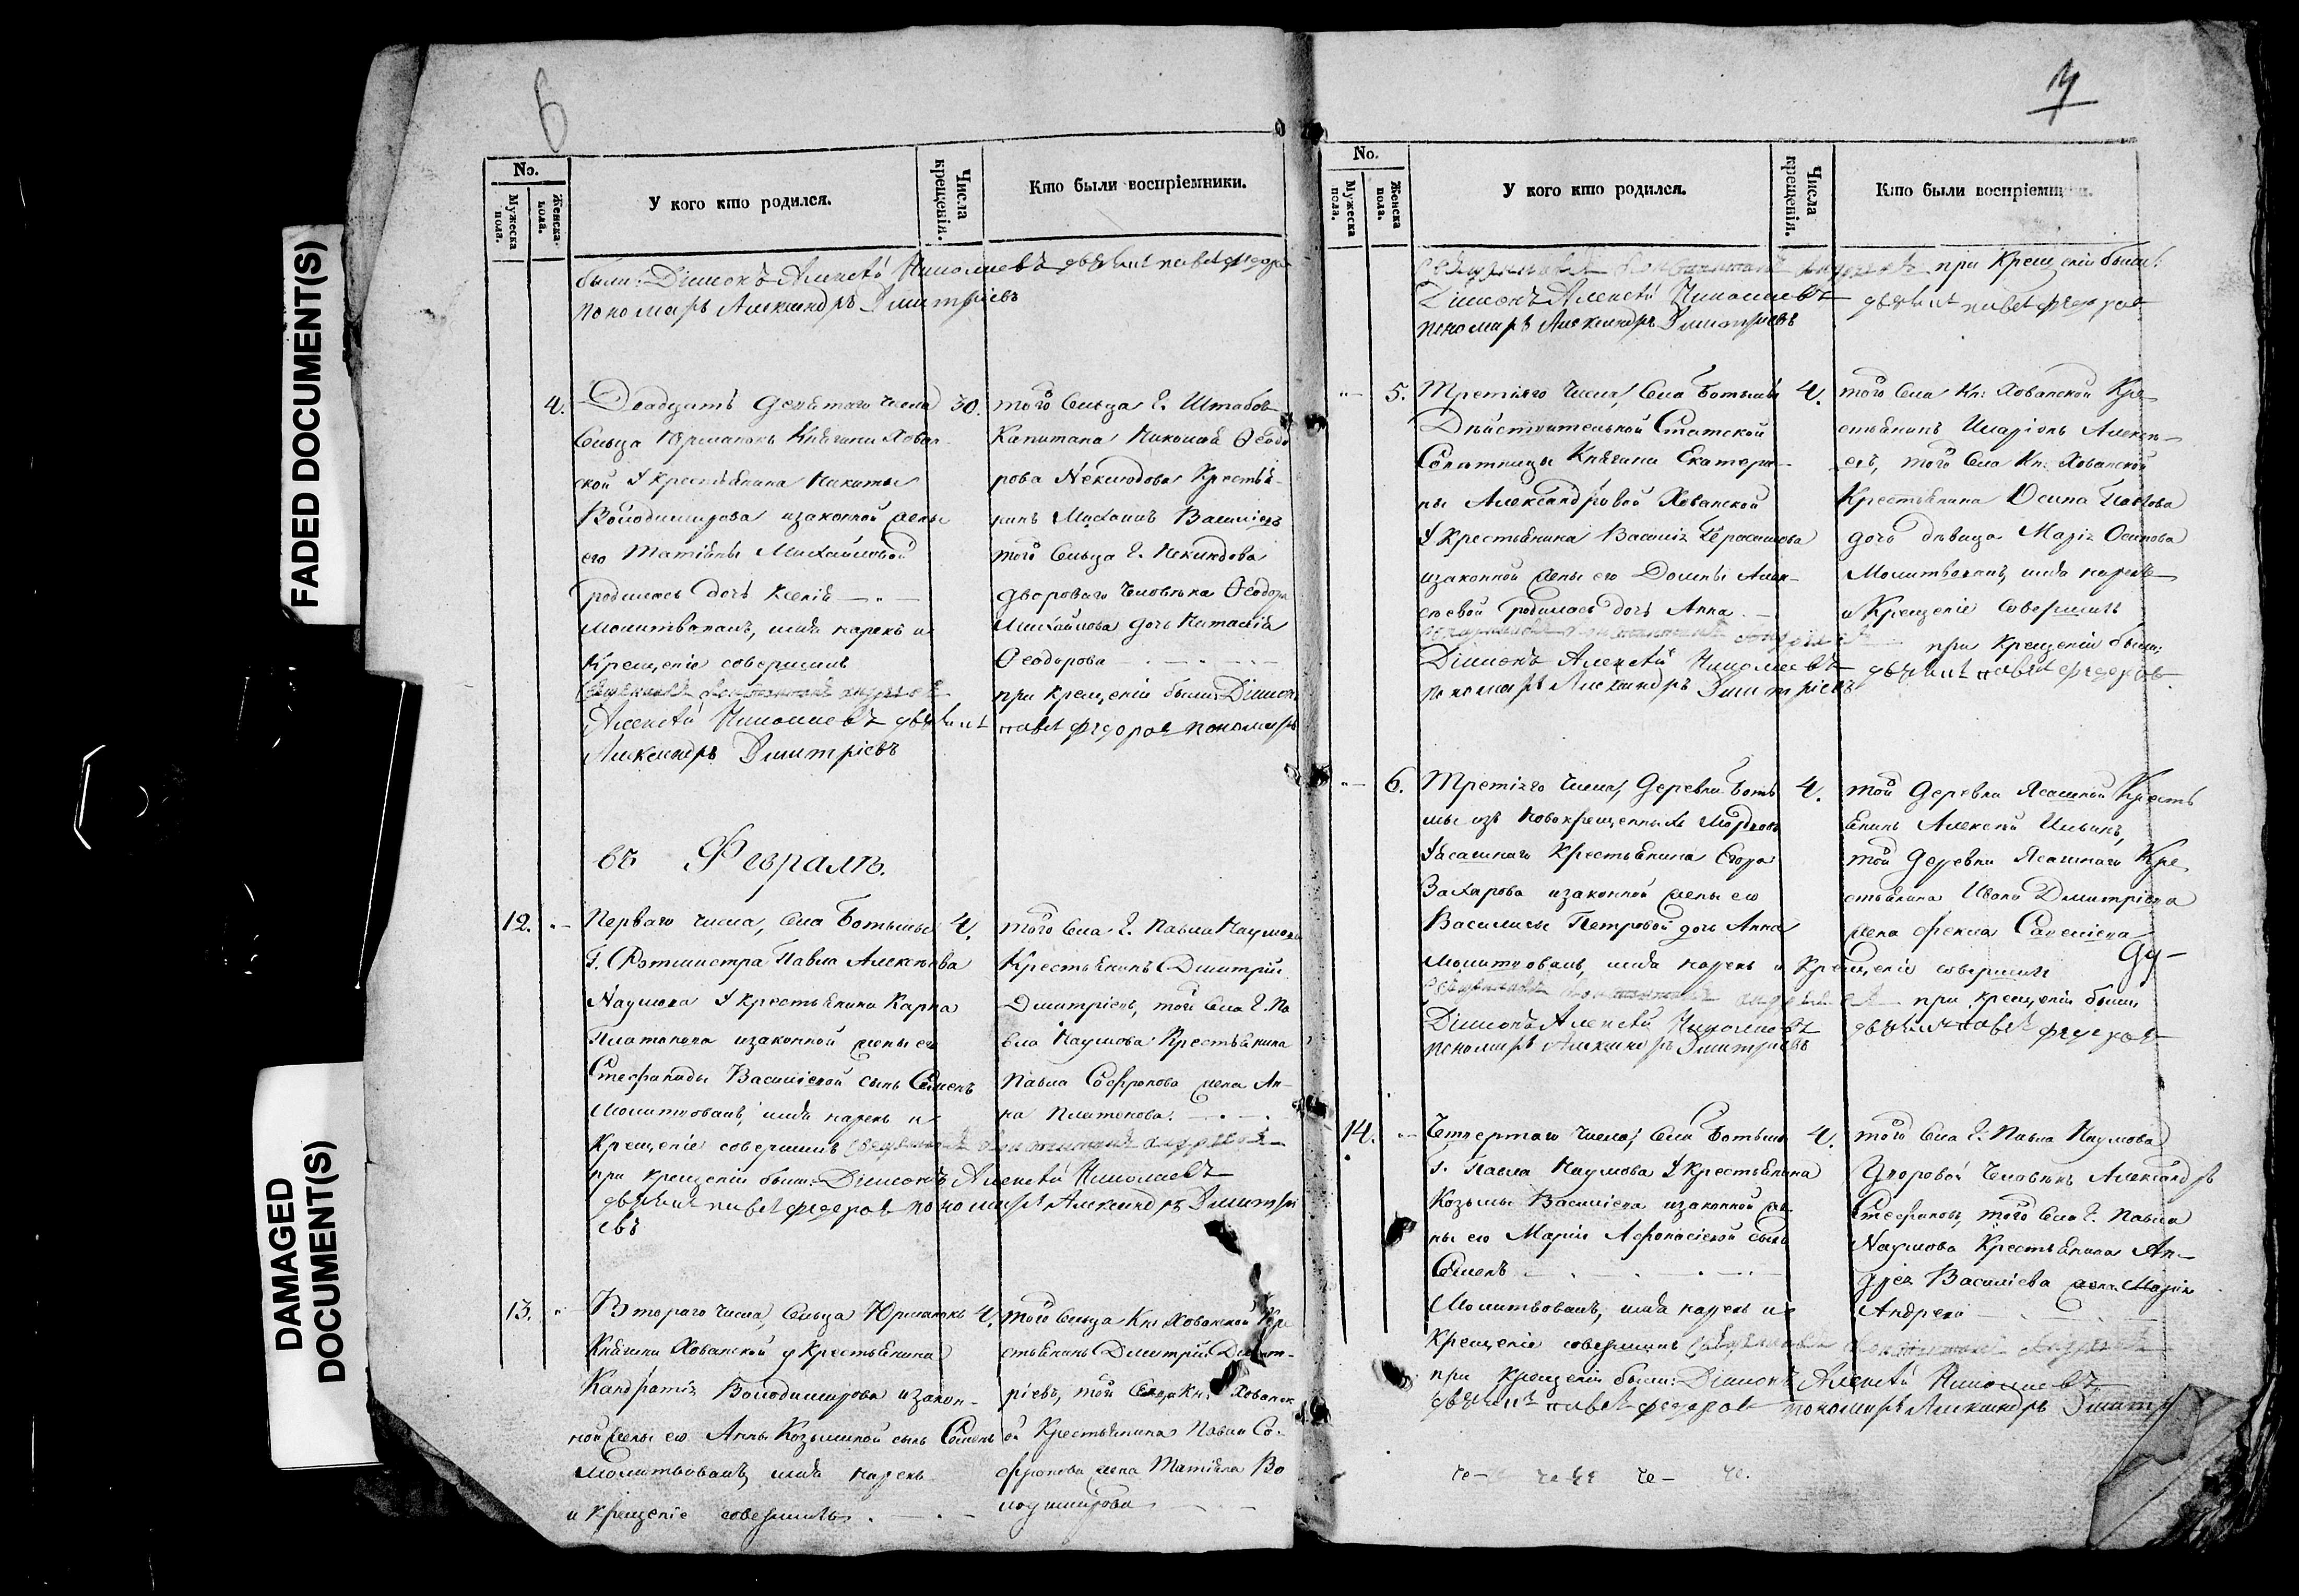 FADED DOCUMENT(S)
DAMAGED DOCUMENT(S)
6
No.
Мужеска пола.
Женска пола.
У кого кто родился.
Числа крещенія.
Кто были воспріемники.
были: Діаконъ Алексѣй Николаевъ дьячекъ павел федоров
пономарь Александръ Дмитріевъ
4.
Двадцать девятаго числа
Сельца Юрманокъ Княгини Хован-
ской у крестьянина Никиты
Володимирова изаконной жены
его Татіяны Михайловой
родилась дочь Ксенія
Молитвовалъ, имя нарекъ и
Крещеніе совершилъ
Алексѣй Николаевъ дьячекъ
Александръ Дмитріевъ
30.
того Сельца Г. Штабсъ
Капитана Николая Ѳеодо
рова Неклюдова Крестья-
нинъ Михаилъ Василіевъ
того Сельца Г. Неклюдова
двороваго Человѣка Ѳеодора
Михайлова дочь Наталія
Ѳеодорова
при крещеніи были: Діакон
павел федоров пономарь
въ Февралѣ.
12.
Перваго числа, Села Ботьмы
Г. Ротмистра Павла Алексѣева
Наумова у крестьянина Карпа
Платонова изаконной жены его
Стефаниды Василіевой сынъ Сѵмеонъ
Молитвовалъ, имя нарекъ и
Крещеніе совершилъ
при крещеніи были: Діаконъ Алексѣй Николаевъ
дьячекъ павел федоров пономарь Александръ Дмитрі
евъ
4.
того Села Г. Павла Наумова
Крестьянинъ Дмитрій
Дмитріевъ, того Села Г. Па
вла Наумова Крестьянина
Павла Софронова жена Ан-
на Платонова.
13.
Втораго числа, Сельца Юрманокъ
Княгини Хованской у Крестьянина
Кандратія Володимирова изакон-
ной жены его Анны Козьминой сынъ Сѵмеонъ
Молитвовалъ, имя нарекъ
и крещеніе совершилъ
4.
того Сельца Кн: Хованской Кре
стьянинъ Дмитрій Дмит-
ріевъ, той Кн: Хованск
ой Крестьянина Павла Со-
фронова жена Татіяна Во
лодимирова
7
No.
Мужеска пола.
Женска пола.
У кого кто родился.
Числа крещенія.
Кто были воспріемники.
при Крещеніи были:
Діаконъ Алексѣй Николаевъ дьячекъ павел федоров
пономарь Александръ Дмитріевъ
5.
Третіяго Числа, Села Ботьмы
Дѣйствительной Статской
Совѣтницы Княгини Екатери-
ны Александровой Хованской
у крестьянина Василія Герасимова
изаконной жены его Домны Алек-
сѣевой родилась дочь Анна
при Крещеніи были:
Діаконъ Алексѣй Николаевъ дьячекъ павел федоров
пономарь Александръ Дмитріевъ
4.
того Села Кн: Хованской Кре-
стьянинъ Иларіонъ Алексѣ-
евъ, того Села Кн: Хованской
Крестьянина Осипа Павлова
дочь дѣвица Марія Осипова
Молитвовалъ, имя нарекъ
и Крещеніе совершилъ
6.
Третіяго числа, Деревни Боть
мы изъ Новокрещенныхъ Мордвовъ
Ясашнаго Крестьянина Егора
Захарова изаконной жены его
Василисы Петровой дочь Анна
Молитвовалъ, имя нарекъ и Крещеніе совершилъ
при Крещеніи были:
Діаконъ Алексѣй Николаевъ дьячекъ павел федоров
пономарь Александръ Дмитріевъ
4.
той Деревни Ясашной Кресть
янинъ Алексѣй Ильинъ,
той Деревни Ясашнаго Кре
стьянина Ивана Дмитріева
жена Фекла Савеліева
14.
Четвертаго числа, Села Ботьмы
Г. Павла Наумова у Крестьянина
Козьмы Василіева изаконной же-
ны его Маріи Афонасіевой сынъ
Сѵмеонъ
Молитвовалъ, имя нарекъ и
крещеніе совершилъ
при крещеніи были: Діаконъ Алексѣй Николаевъ
дьячекъ павел федоров пономарь Александръ Дмитр
4.
того Села Г. Павла Наумова
Дворовой Человѣкъ Александръ
Стефановъ, того Села Г. Павла
Наумова Крестьянина Ан-
дрея Василіева жена Марія
Андреева